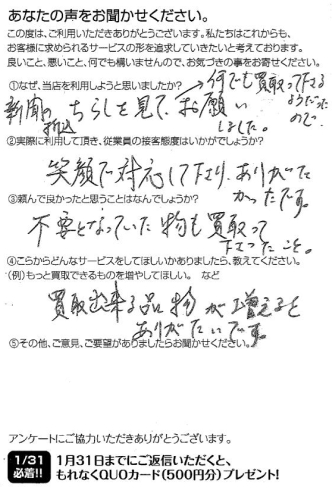 あなたの声をお聞かせください。
この度は、ご利用いただきありがとうございます。私たちはこれからも、
お客様に求められるサービスの形を追求していきたいと考えております。
良いこと、悪いこと、何でも構いませんので、お気づきの事をお寄せください。
①なぜ、当店を利用しようと思いましたか?
新聞の折込ちらしを見て、お願いしました。
何でも買取って下さるようだったので
②実際に利用して頂き、従業員の接客態度はいかがでしょうか?
笑顔で対応して下さり、ありがたかったです。
③頼んで良かったと思うことはなんでしょうか?
不要となっていた物も買取って
下さったこと。
④こらからどんなサービスをしてほしいかありましたら、教えてください。
(例)もっと買取できるものを増やしてほしい。 など
買取出来る品物が増えると
ありがたいです。
⑤その他、ご意見、ご要望がありましたらお聞かせください。
アンケートにご協力いただきありがとうございます。
1/31必着!!
1月31日までにご返信いただくと、
もれなくQUOカード(500円分)プレゼント!